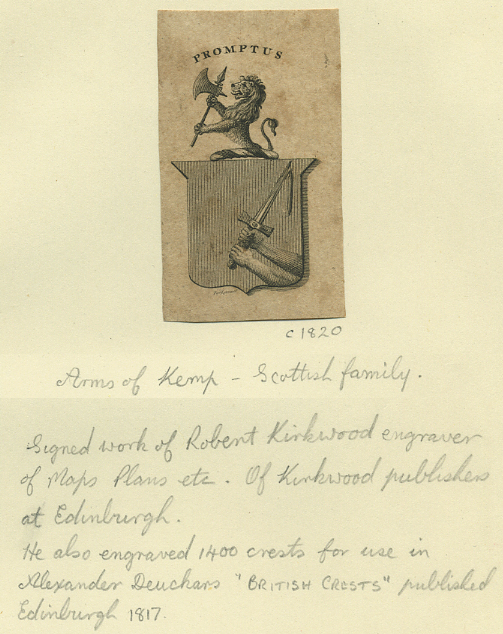 PROMPTUS
c 1820
Arms of Kemp – Scottish family.
Signed work of Robert Kirkwood engraver
of Maps Plans etc. Of Kirkwood publishers
at Edinburgh.
He also engraved 1400 crests for use in
Alexander Deuchars "BRITISH CRESTS" published
Edinburgh 1817.